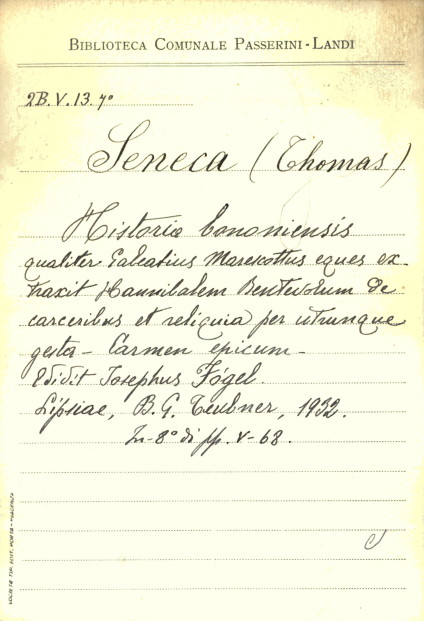 BIBLIOTECA COMUNALE PASSERINI-LANDI
2B.V.13.7º
Seneca (Thomas)
Historia bononiensis
qualiter Galeatius Marescottus eques ex-
traxit Hannibalem Bentivolum de
carceribus et reliquia per utrunque
gesta - Carmen epicum -
Edidit Josephus Fógel.
Lipsiae, B. G. Teubner, 1932.
In-8º di pp. V-68.